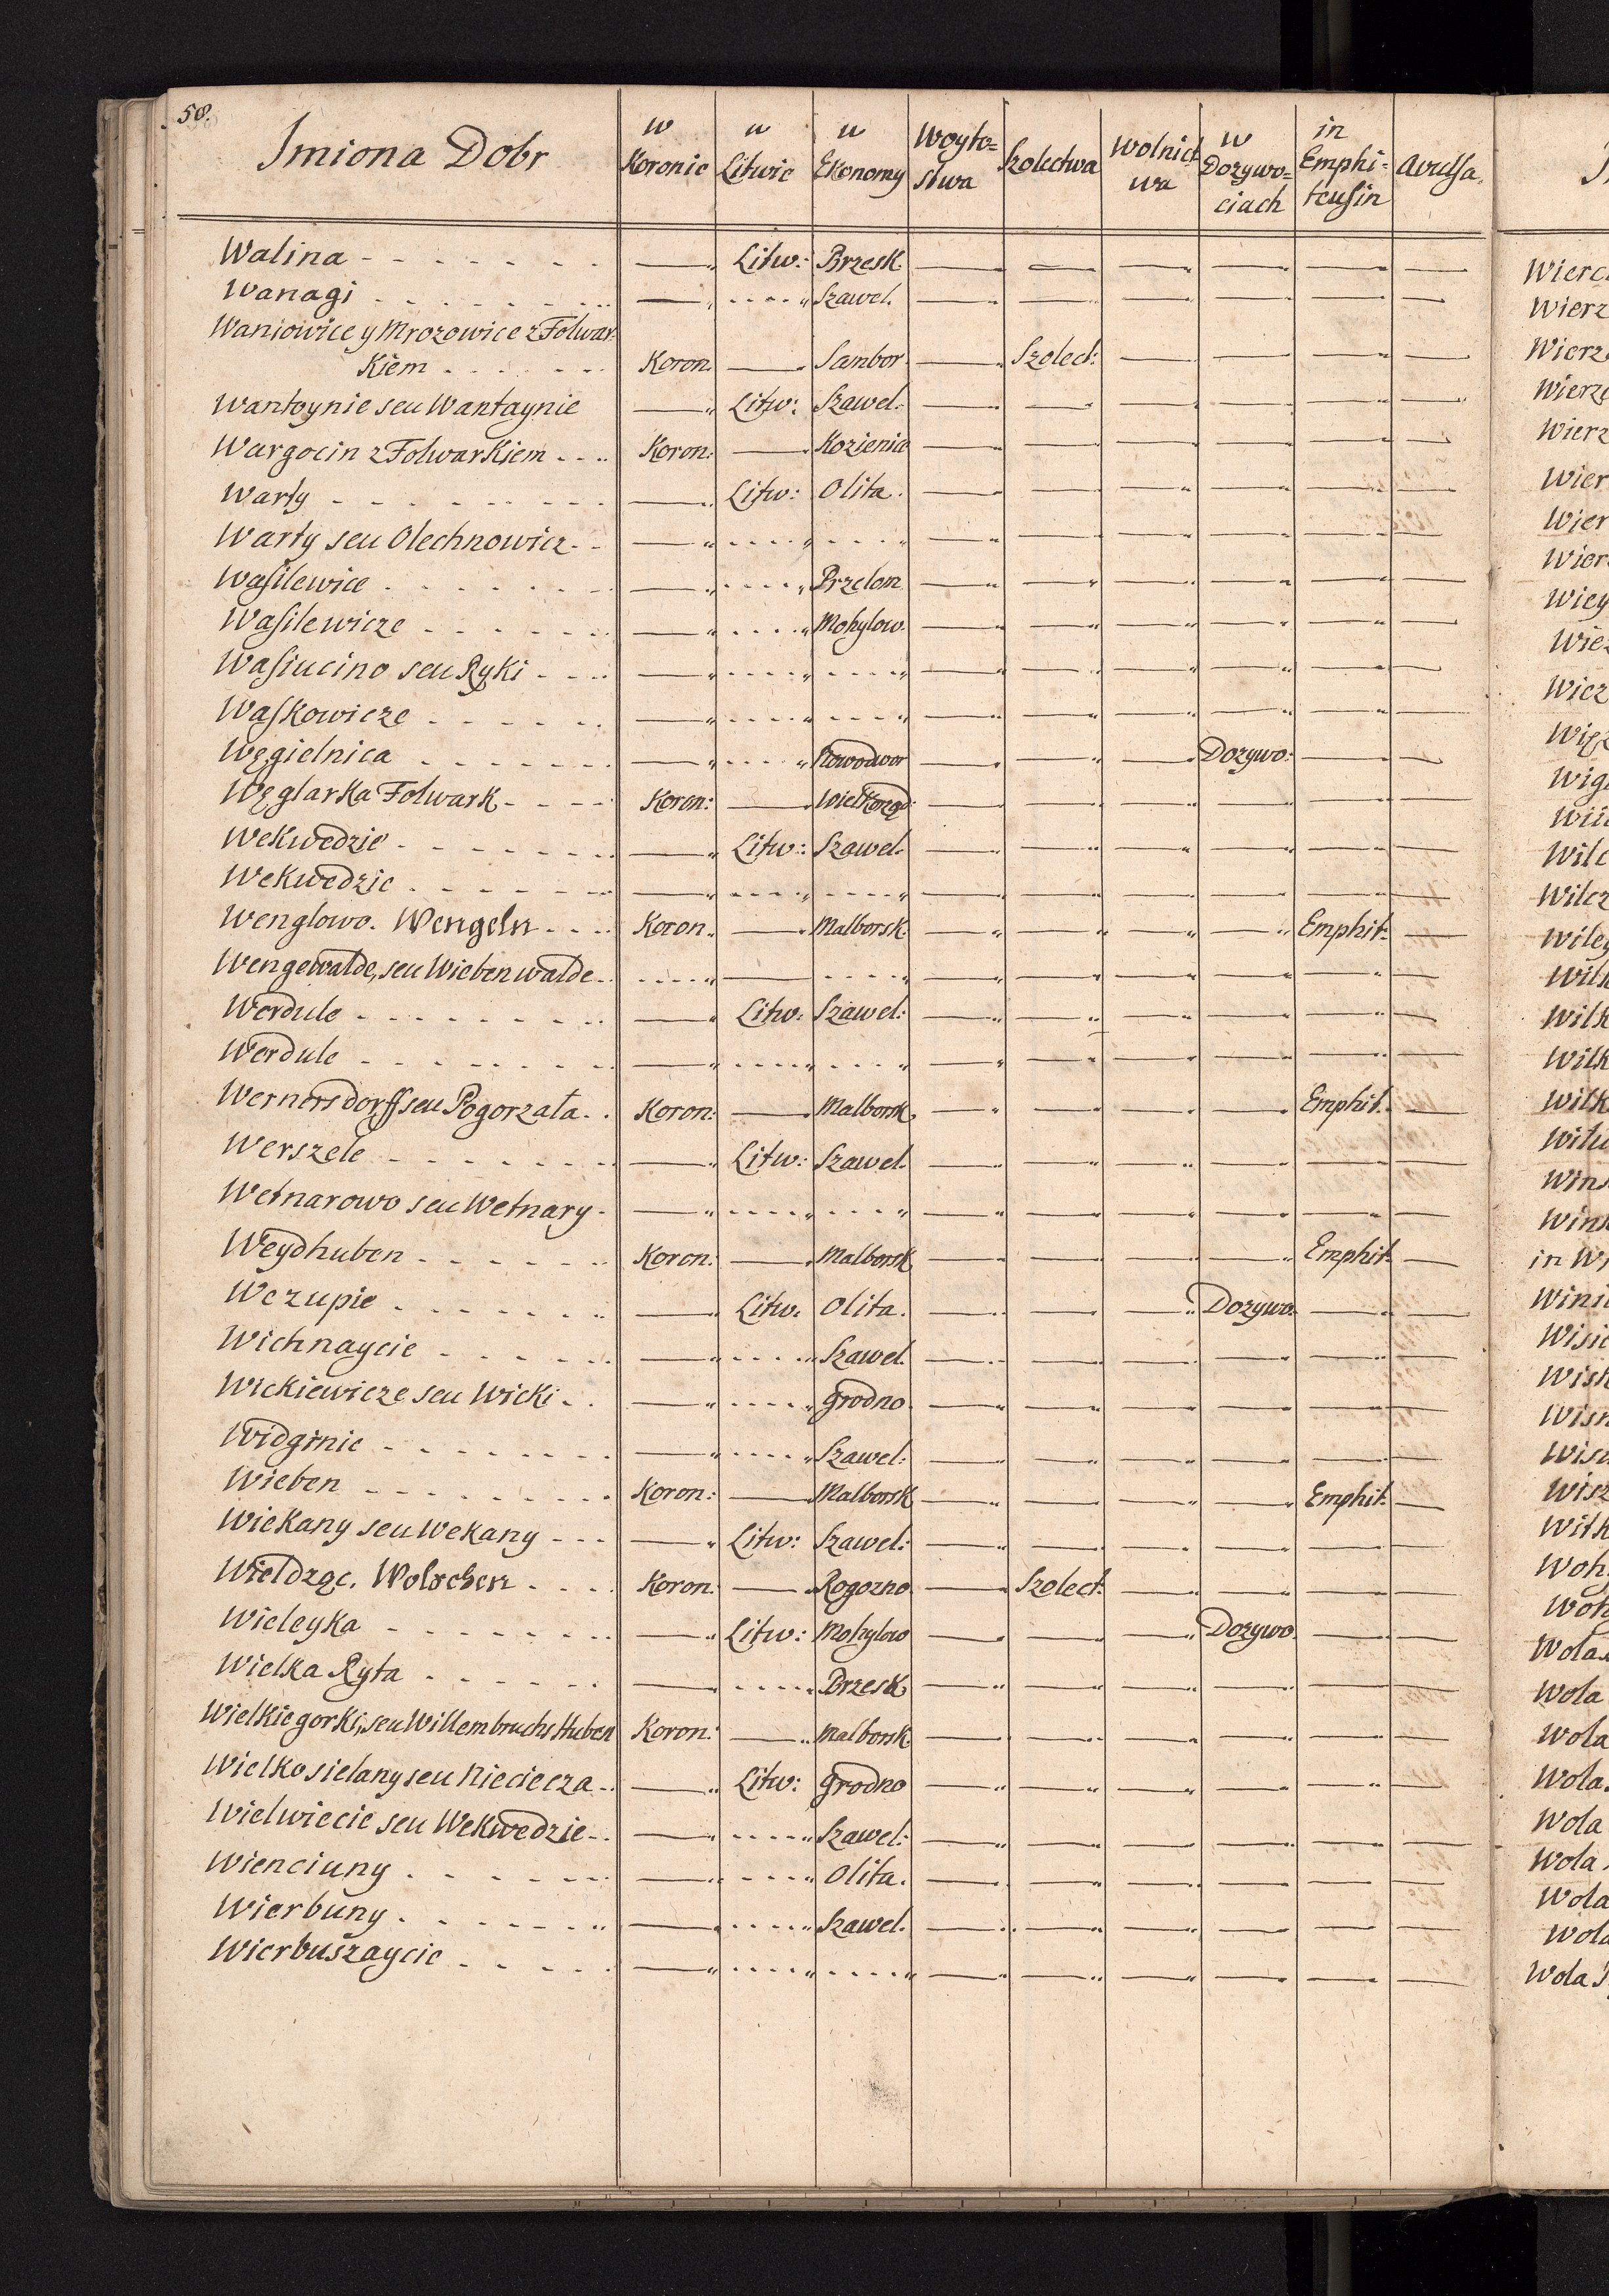 58.
Imiona Dobr | w Koronie | w Litwie | w Ekonomy | Woyto=stwa | Szolectwa | Wolnict wa | w Dozywo=ciach | in Emphi=teusin | Avulsa.
Walina - - - | — | Litw: | Brzesk | — | — | — | — | — | —
Wanagi - - - | — | - - - - " | Szawel. | — | — | — | — | — | —
Waniowice y Mrozowice z Folwar=
Kiem - - - | Koron. | — | Sambor | — | Szolect: | — | — | — | —
Wantoynie seu Wantaynie | — | Litw: | Szawel: | — | — | — | — | — | —
Wargocin z Folwarkiem - - - | Koron: | — | Kozienic | — | — | — | — | — | —
Warty - - - | — | Litw: | Olita. | — | — | — | — | — | —
Warty seu Olechnowicz - - | — | - - - - " | - - - - " | — | — | — | — | — | —
Wasilewice - - - | — | - - - - " | Przelom | — | — | — | — | — | —
Wasilewicze - - - | — | - - - - " | Mohylow. | — | — | — | — | — | —
Wasiucino seu Ryki - - - | — | - - - - " | - - - - " | — | — | — | — | — | —
Waskowicze - - - | — | - - - - " | - - - - " | — | — | — | — | — | —
Węgielnica - - - | — | - - - - " | Nowodwor | — | — | — | Dozywo: | — | —
Węglarka Folwark - - - | Koron: | — | Wielkorząd: | — | — | — | — | — | —
Wekwedzie - - - | — | Litw: | Szawel. | — | — | — | — | — | —
Wekwedzie - - - | — | - - - - " | - - - - " | — | — | — | — | — | —
Wenglowo. Wengeln - - - | Koron. | — | Malborsk. | — | — | — | — | Emphit: | —
Wengewalde, seu Wiebenwalde - | - - - - " | — | - - - - " | — | — | — | — | — | —
Werdule - - - | — | Litw: | Szawel: | — | — | — | — | — | —
Werdule - - - | — | - - - - " | - - - - " | — | — | — | — | — | —
Wernersdorff seu Pogorzała - - | Koron: | — | Malborsk. | — | — | — | — | Emphit. | —
Werszele - - - | — | Litw: | Szawel. | — | — | — | — | — | —
Wetnarowo seu Wetnary - | — | - - - - " | - - - - " | — | — | — | — | — | —
Weydhuben - - - | Koron: | — | Malborsk | — | — | — | — | Emphit. | —
Wezupie - - - | — | Litw: | Olita. | — | — | — | Dozywo: | — | —
Wichnaycie - - - | — | - - - - " | Szawel. | — | — | — | — | — | —
Wickiewicze seu Wicki - - | — | - - - - " | Grodno. | — | — | — | — | — | —
Widginie - - - | — | - - - - " | Szawel: | — | — | — | — | — | —
Wieben - - - | Koron: | — | Malborsk | — | — | — | — | Emphit: | —
Wiekany seu Wekany - - - | — | Litw: | Szawel: | — | — | — | — | — | —
Wieldząc. Wolschen - - - | Koron. | — | Rogozno. | — | Szolect: | — | — | — | —
Wieleyka - - - | — | Litw: | Mohylow | — | — | — | Dozywo. | — | —
Wielka Ryta - - - | — | - - - - " | Brzesk | — | — | — | — | — | —
Wielkie gorki, seu Willembruchs Huben | Koron: | — | Malborsk. | — | — | — | — | — | —
Wielko sielany seu Nieciecza - - | — | Litw: | Grodno | — | — | — | — | — | —
Wielwiecie seu Wekwedzie - - | — | - - - - " | Szawel: | — | — | — | — | — | —
Wienciuny - - - | — | - - - - " | Olita. | — | — | — | — | — | —
Wierbuny - - - | — | - - - - " | Szawel. | — | — | — | — | — | —
Wierbuszaycie - - - | — | - - - - " | - - - - " | — | — | — | — | — | —